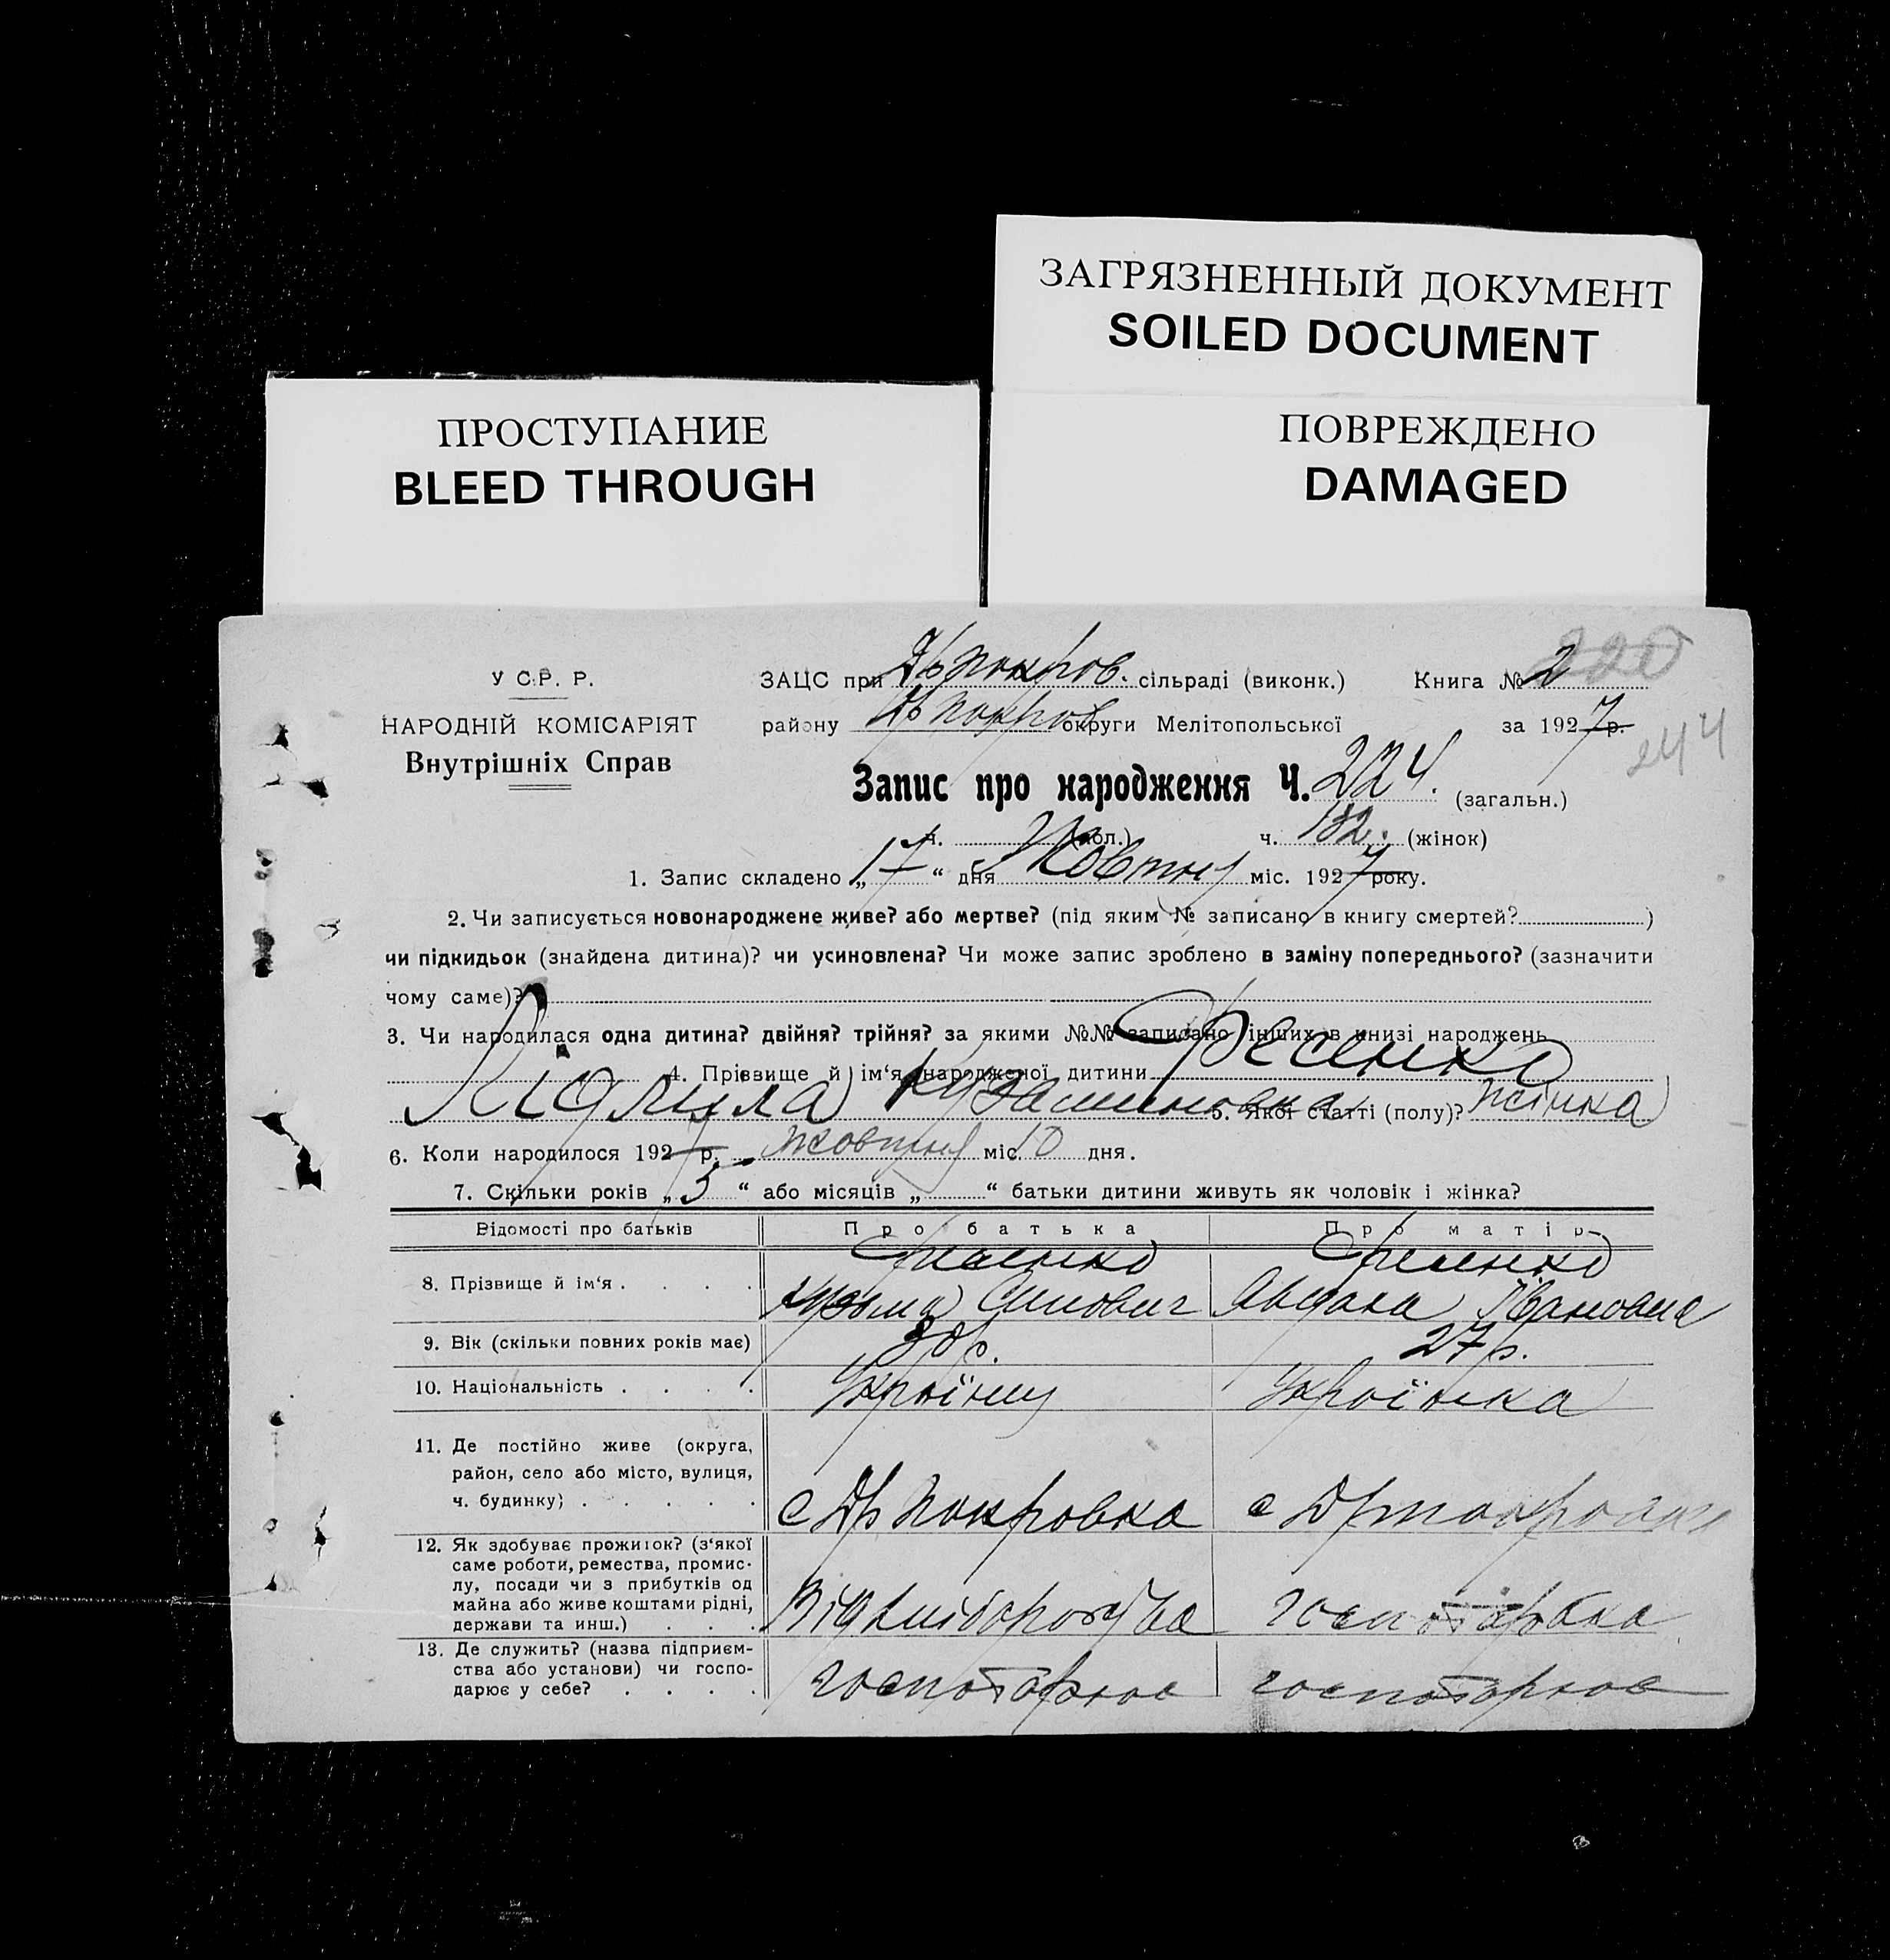 ЗАГРЯЗНЕННЫЙ ДОКУМЕНТ
SOILED DOCUMENT
ПРОСТУПАНИЕ
BLEED THROUGH
ПОВРЕЖДЕНО
DAMAGED
220
У С.Р. Р.
НАРОДНІЙ КОМІСАРІЯТ
Внутрішніх Справ
ЗАЦС при Др покров. сільраді (виконк.) Книга № 2
району Др покров округи Мелітопольської за 1927 р.
244
Запис про народження Ч. 224. (загальн.)
ч. (чол.) ч. 132. (жінок)
1. Запис складено „ 17 “ дня Жовтня міс. 1927 року.
2. Чи записується новонароджене живе? або мертве? (під яким № записано в книгу смертей? )
чи підкидьок (знайдена дитина)? чи усиновлена? Чи може запис зроблено в заміну попереднього? (зазначити
чому саме)?
3. Чи народилася одна дитина? двійня? трійня? за якими №№ записано інших в книзі народжень
4. Прізвище й ім‘я народженої дитини Фесенко
Кузьминовна 5. Якої статті (полу)? Жінка
6. Коли народилося 1927 р. Жовтня міс. 10 дня.
7. Скільки років „ 5 “ або місяців „ “ батьки дитини живуть як чоловік і жінка?
Відомості про батьків Про батька Про матір
8. Прізвище й ім‘я . . . . Фесенко Кузьма Фесенко Івановна
9. Вік (скільки повних років має) 30 р. 27 р.
10. Національність . . . . Українц Українка
11. Де постійно живе (округа,
район, село або місто, вулиця,
ч. будинку) . . . . . с Др Покровка с Др покровка
12. Як здобуває прожиток? (з‘якої
саме роботи, ремества, промис-
лу, посади чи з прибутків од
майна або живе коштами рідні,
держави та инш.) . . . Від хліборобства
13. Де служить? (назва підприєм-
ства або установи) чи госпо-
дарює у себе? . . . . господарює господарює